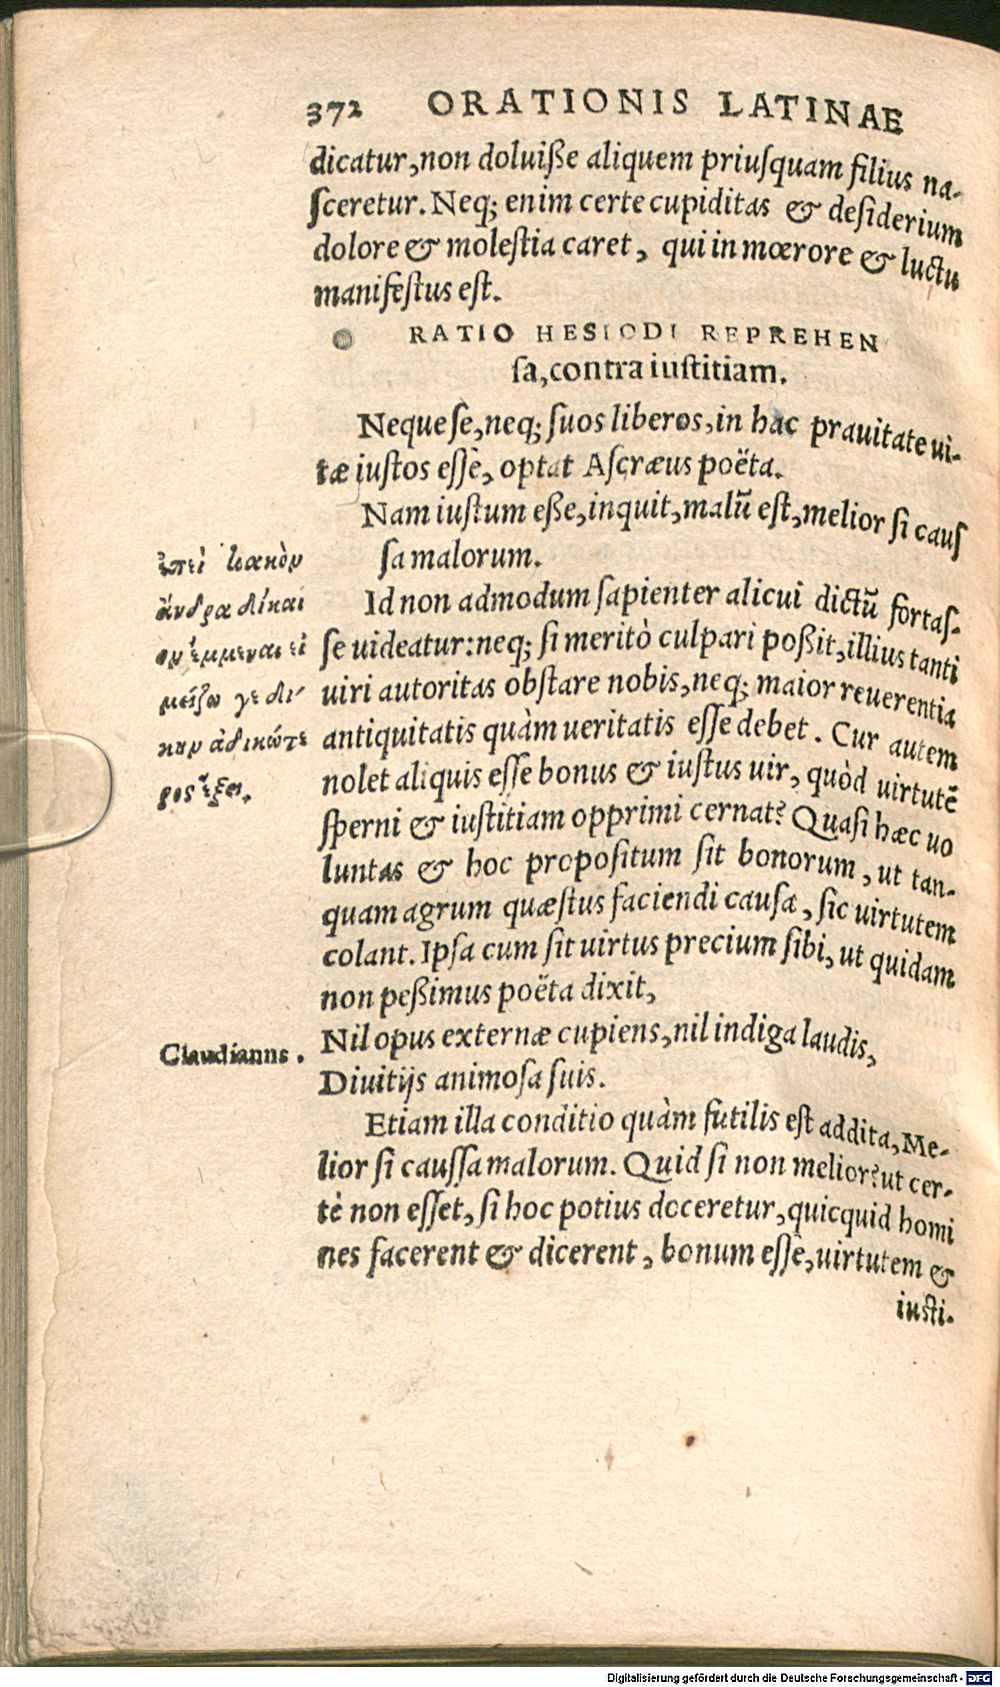 372 ORATIONIS LATINAE
dicatur, non doluiße aliquem priusquam filius na-
sceretur. Neq; enim certe cupiditas & desiderium
dolore & molestia caret, qui in mœrore & luctu
manifestus est.
RATIO HESIODI REPREHEN
sa, contra iustitiam.
Neque se, neq; suos liberos, in hac prauitate ui-
tæ iustos esse, optat Ascræus poëta.
Nam iustum eße, inquit, malū est, melior si caus
sa malorum.
ἐπεὶ κακὸν
ἄνδρα δίκαι
ον ἔμμεναι εἰ
μείζω γε δί-
κην ἀδικώτε
ρος ἕξει.
Id non admodum sapienter alicui dictū fortas-
se uideatur: neq; si meritò culpari poßit, illius tanti
uiri autoritas obstare nobis, neq; maior reuerentia
antiquitatis quàm ueritatis esse debet. Cur autem
nolet aliquis esse bonus & iustus uir, quòd uirtutē
sperni & iustitiam opprimi cernat? Quasi hæc uo
luntas & hoc propositum sit bonorum, ut tan-
quam agrum quæstus faciendi causa, sic uirtutem
colant. Ipsa cum sit uirtus precium sibi, ut quidam
non peßimus poëta dixit,
Claudianns.
Nil opus externæ cupiens, nil indiga laudis,
Diuitijs animosa suis.
Etiam illa conditio quàm futilis est addita, Me-
lior si caussa malorum. Quid si non melior? ut cer-
tè non esset, si hoc potius doceretur, quicquid homi
nes facerent & dicerent, bonum esse, uirtutem &
iusti-
Digitalisierung gefördert durch die Deutsche Forschungsgemeinschaft - DFG